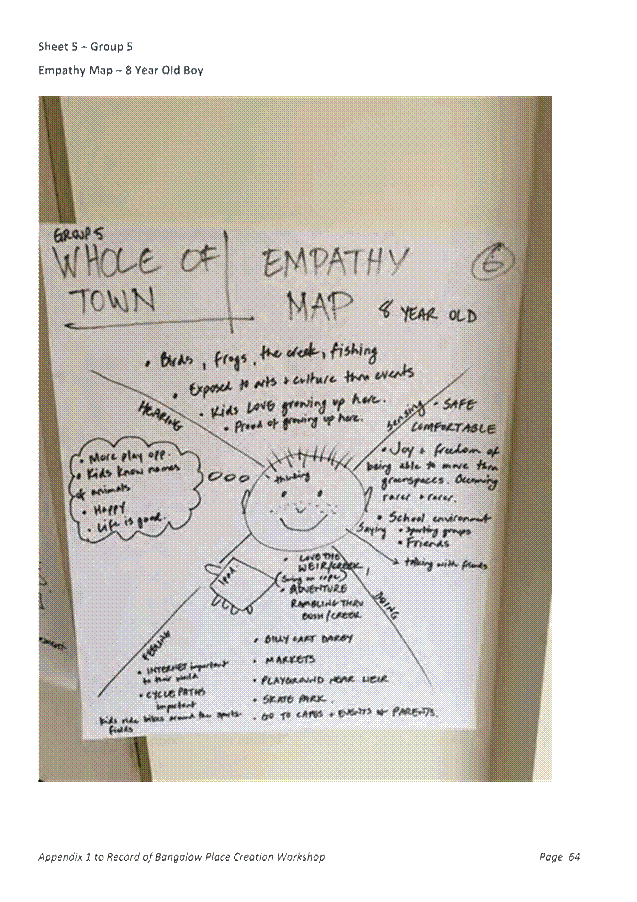 Sheet 5 – Group 5
Empathy Map – 8 Year Old Boy
GROUP 5
WHOLE OF
TOWN
EMPATHY
MAP
8 YEAR OLD
6
• Birds, frogs, the creek, fishing
• Exposed to arts + culture thru events
• Kids LOVE growing up here.
• Proud of growing up here.
HEARING
sensing
• SAFE
COMFORTABLE
• Joy + freedom of
being able to move thru
greenspaces.
• School environment
• sporting groups
• Friends
Saying
→ talking with friends
thinking
• More play opp.
• Kids know names
of animals
• Happy
• Life is good.
ipad
• LOVE THE
WEIR/CREEK,
(swing on rope)
• ADVENTURE
RAMBLING THRU
BUSH/CREEK
DOING
• BILLY CART DARBY
• MARKETS
• PLAYGROUND NEAR WEIR
• SKATE PARK.
• GO TO CAFES + EVENTS W PARENTS.
FEELING
• INTERNET important
to their world
• CYCLE PATHS
important
kids ride bikes around the sports
fields
Appendix 1 to Record of Bangalow Place Creation Workshop
Page 64